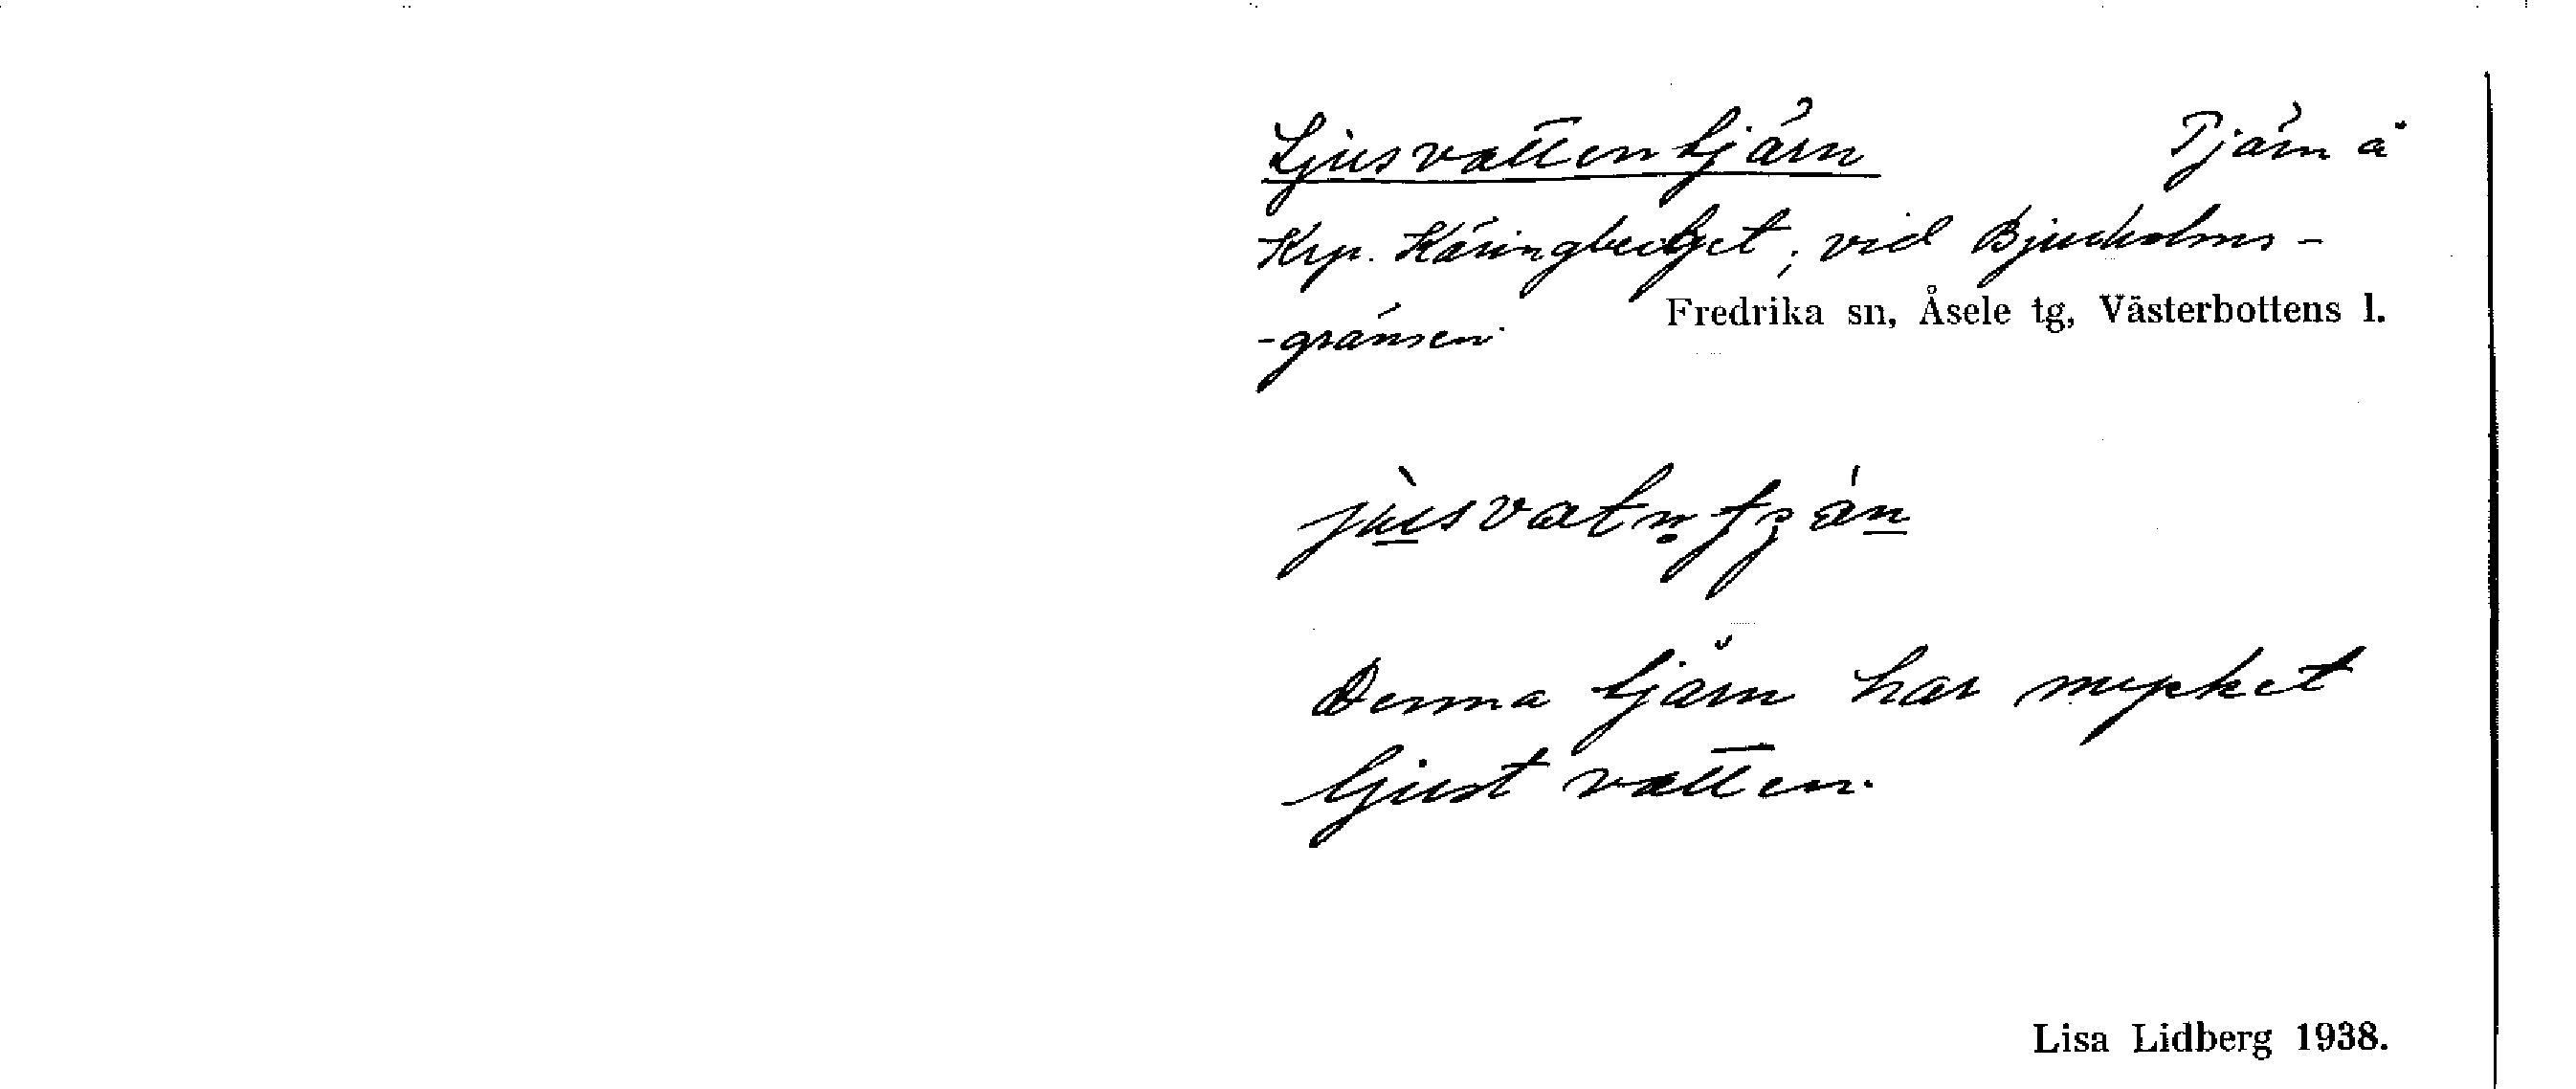 Ljusvattentjärn Tjärn å
Krp. Käringberget, vid Bjurholms-
-gränsen Fredrika sn, Åsele tg, Västerbottens l.
Denna tjärn har mycket
ljust vatten.
Lisa Lidberg 1938.